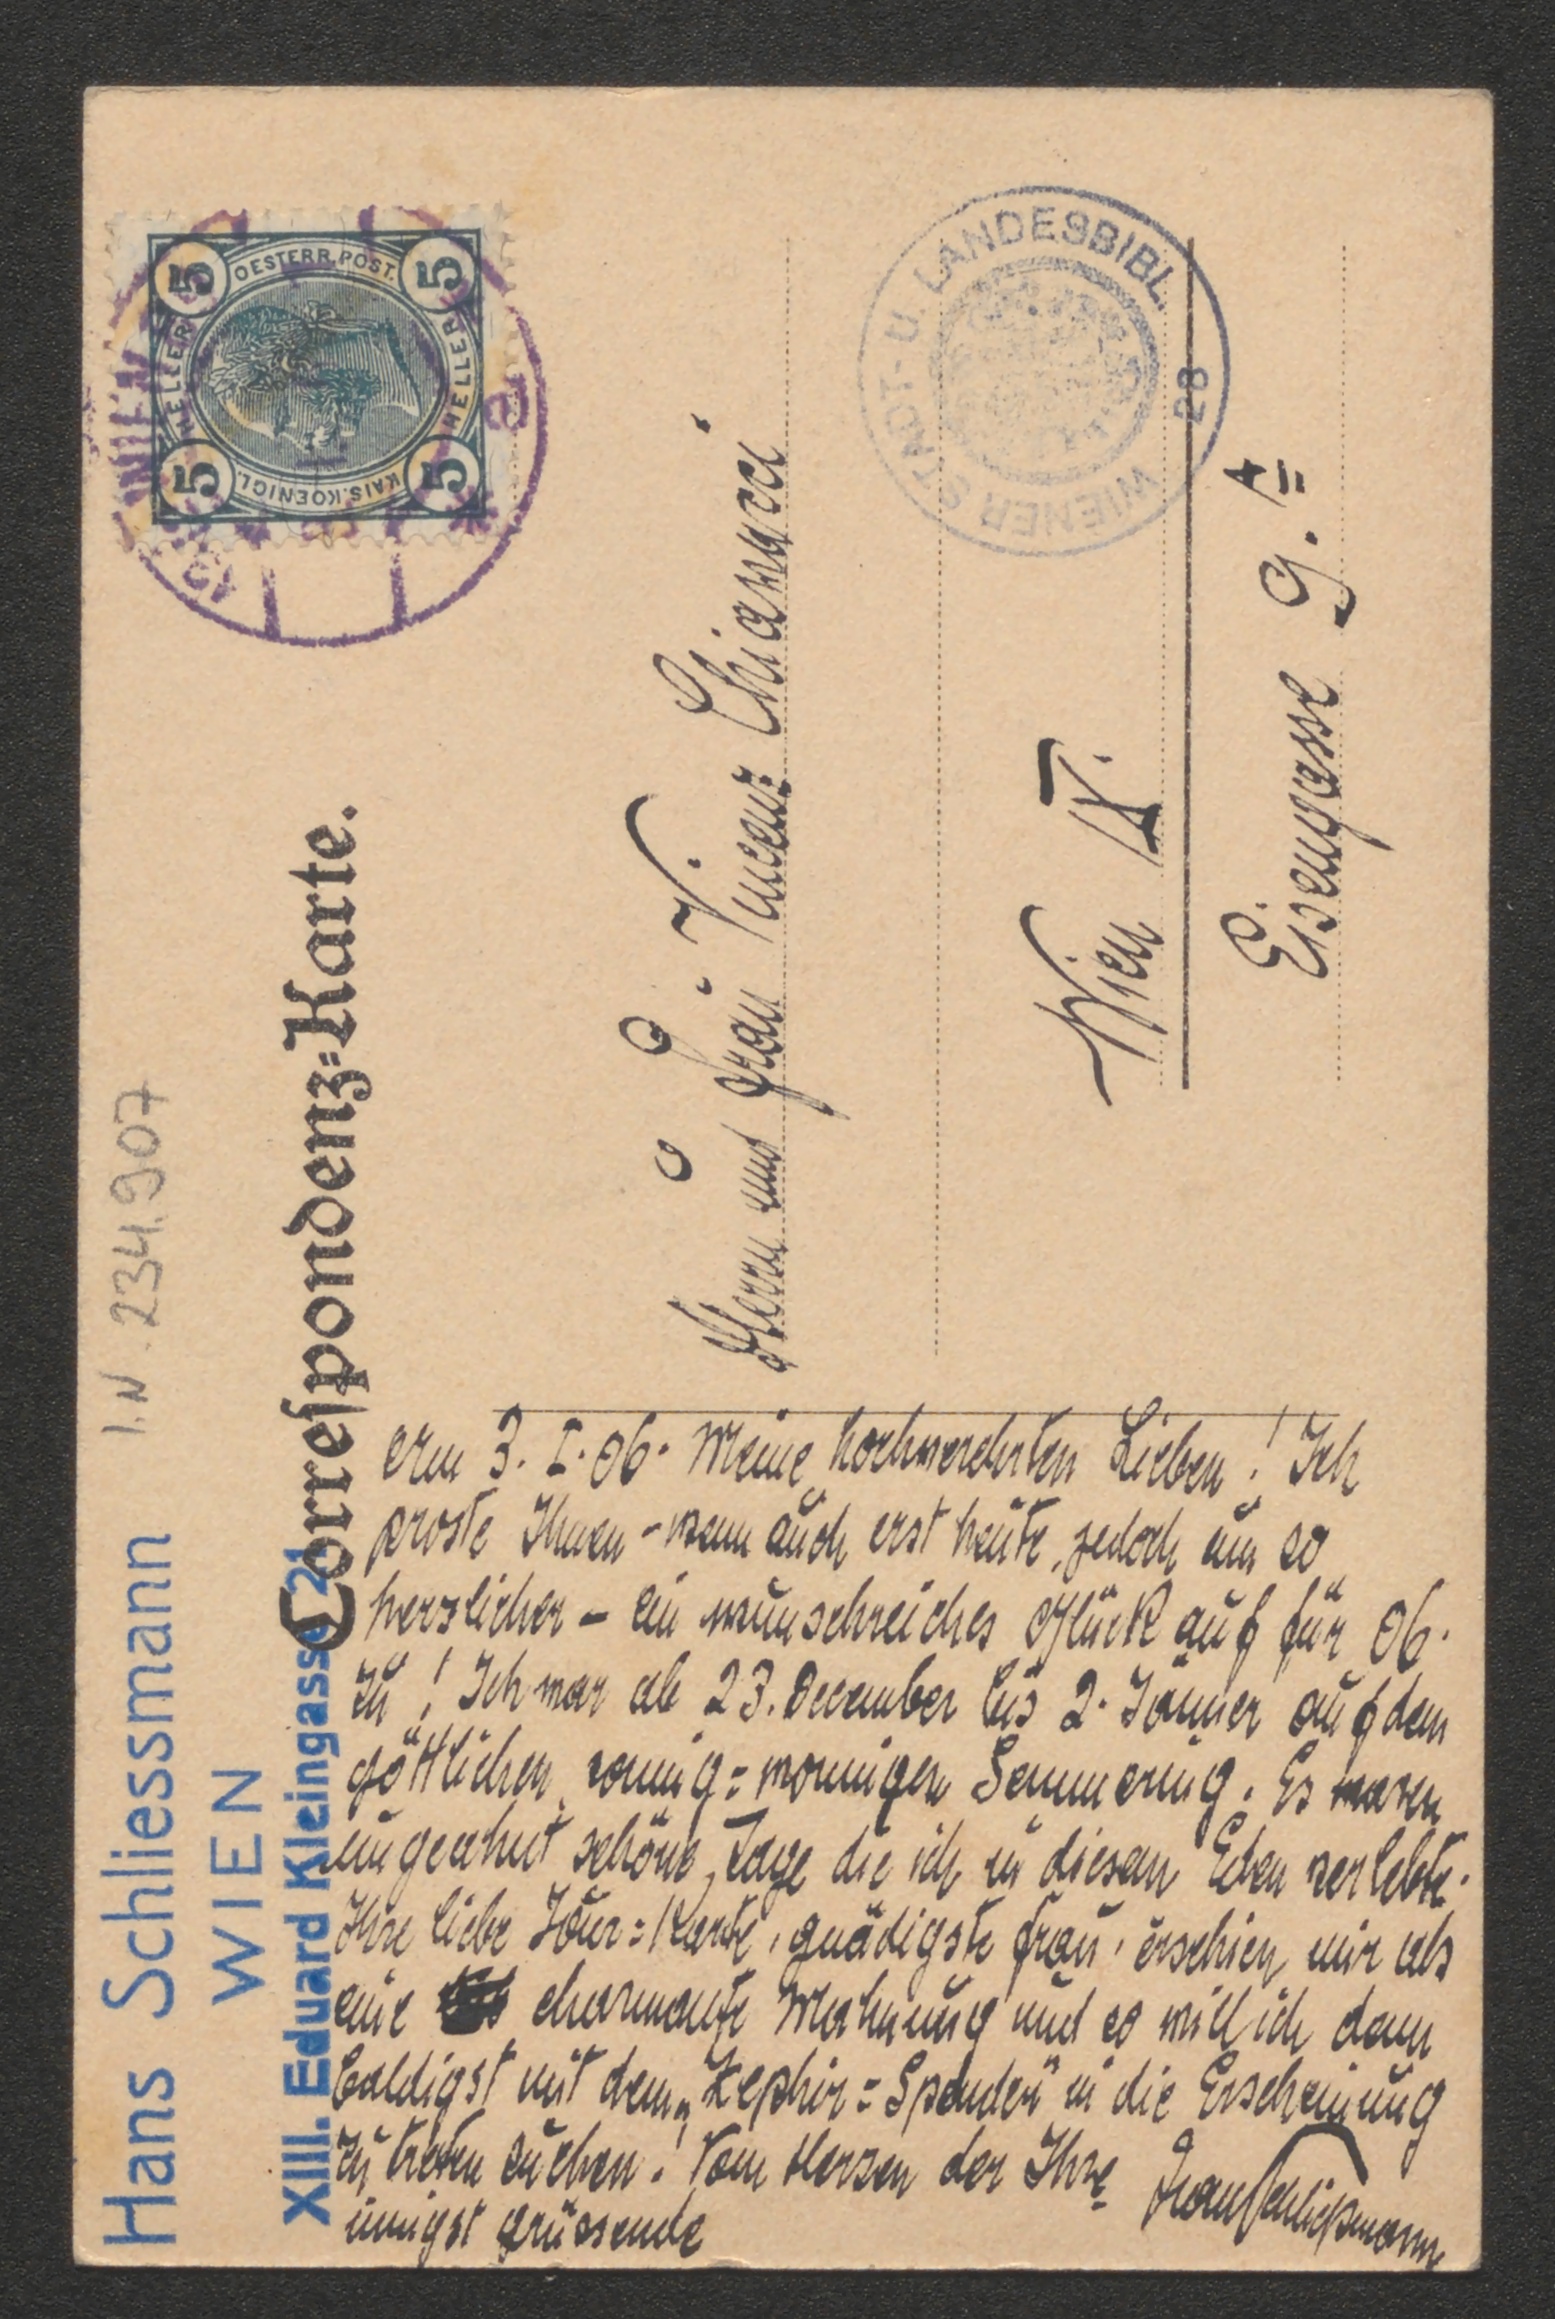 Hans Schliessmann
WIEN
XIII. Eduard Kleingasse 21
I.N. 234.907
Correspondenz-Karte.
OESTERR. POST.
5 5 5 5
HELLER HELLER
KAIS. KOENIGL.
WIEN
Herrn und Frau Vincenz Chiavacci
Wien IX.
Eisengasse 9.A
WIENER STADT- U. LANDESBIBL.
28
am 3. I. 06. Meine hochverehrten Lieben! Ich
proste Ihnen - wenn auch erst heute, jedoch um so
herzlicher - ein wunschreiches Glück auf für 06.
zu! Ich war ab 23. December bis 2. Jänner auf dem
göttlichen, sonnig=wonnigen Semmering. Es waren
ungeahnt schöne Tage die ich in diesem Eden verlebte.
Ihre liebe Jour=Karte, gnädigste Frau, erschien mir als
eine charmante Mahnung und so will ich denn
baldigst mit dem „Zephir=Spender" in die Erscheinung
zu treten suchen! Vom Herzen der Ihre
innigst grüssende
Hans Schließmann